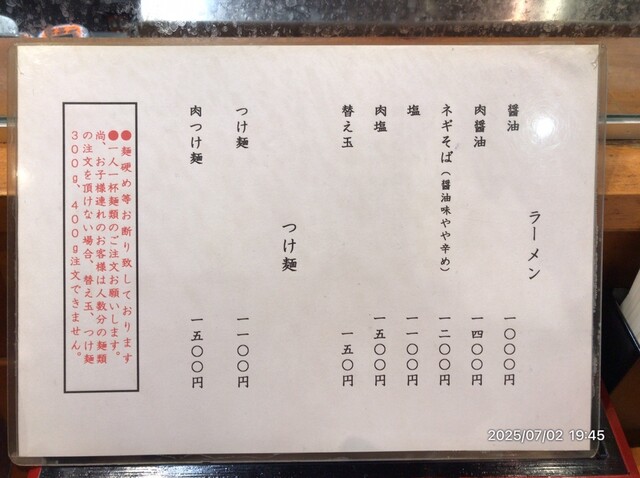 ラーメン
醤油 一〇〇〇円
肉醤油 一四〇〇円
ネギそば（醤油味やや辛め） 一二〇〇円
塩 一一〇〇円
肉塩 一五〇〇円
替え玉 一五〇円
つけ麺
つけ麺 一一〇〇円
肉つけ麺 一五〇〇円
●麺硬め等お断り致しております
●一人一杯麺類のご注文お願いします。
尚、お子様連れのお客様は人数分の麺類
の注文を頂けない場合、替え玉、つけ麺
300g、400g注文できません。
2025/07/02 19:45